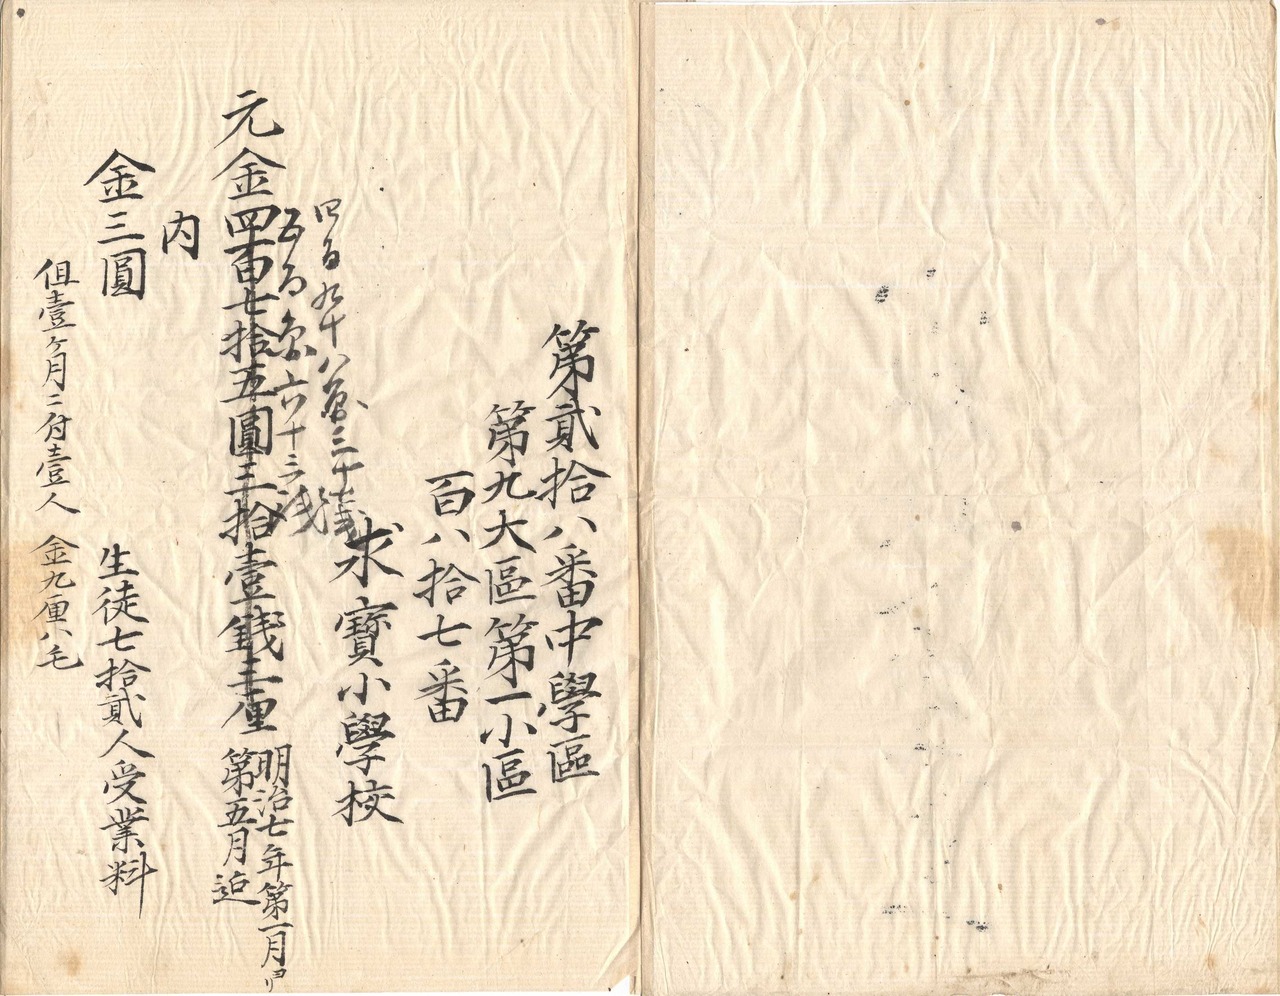 第貳拾八番中學區
第九大區第一小區
百八拾七番
求寳小學校
四百九十八圓三十銭
五百圓六十三銭
元金四百七拾五圓三拾壹錢三厘
明治七年第一月ヨリ
第五月迠
内
金三圓
生徒七拾貳人受業料
但壹ヶ月ニ付壹人
金九厘八毛